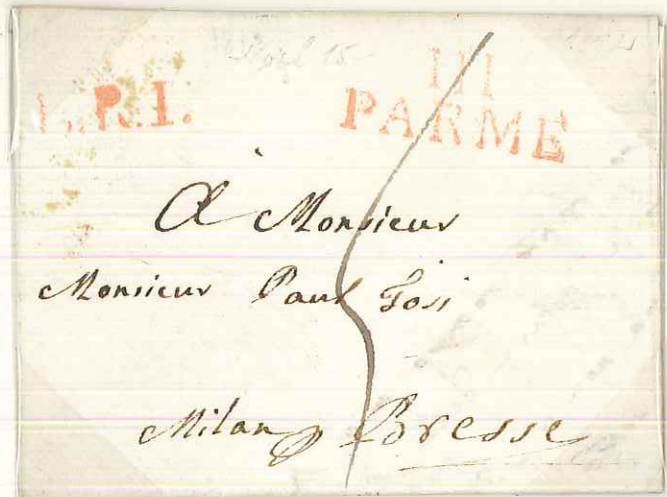 L. P. I.
111
PARME
A Monsieur
Monsieur Paul Tosi
Milan p Bresse